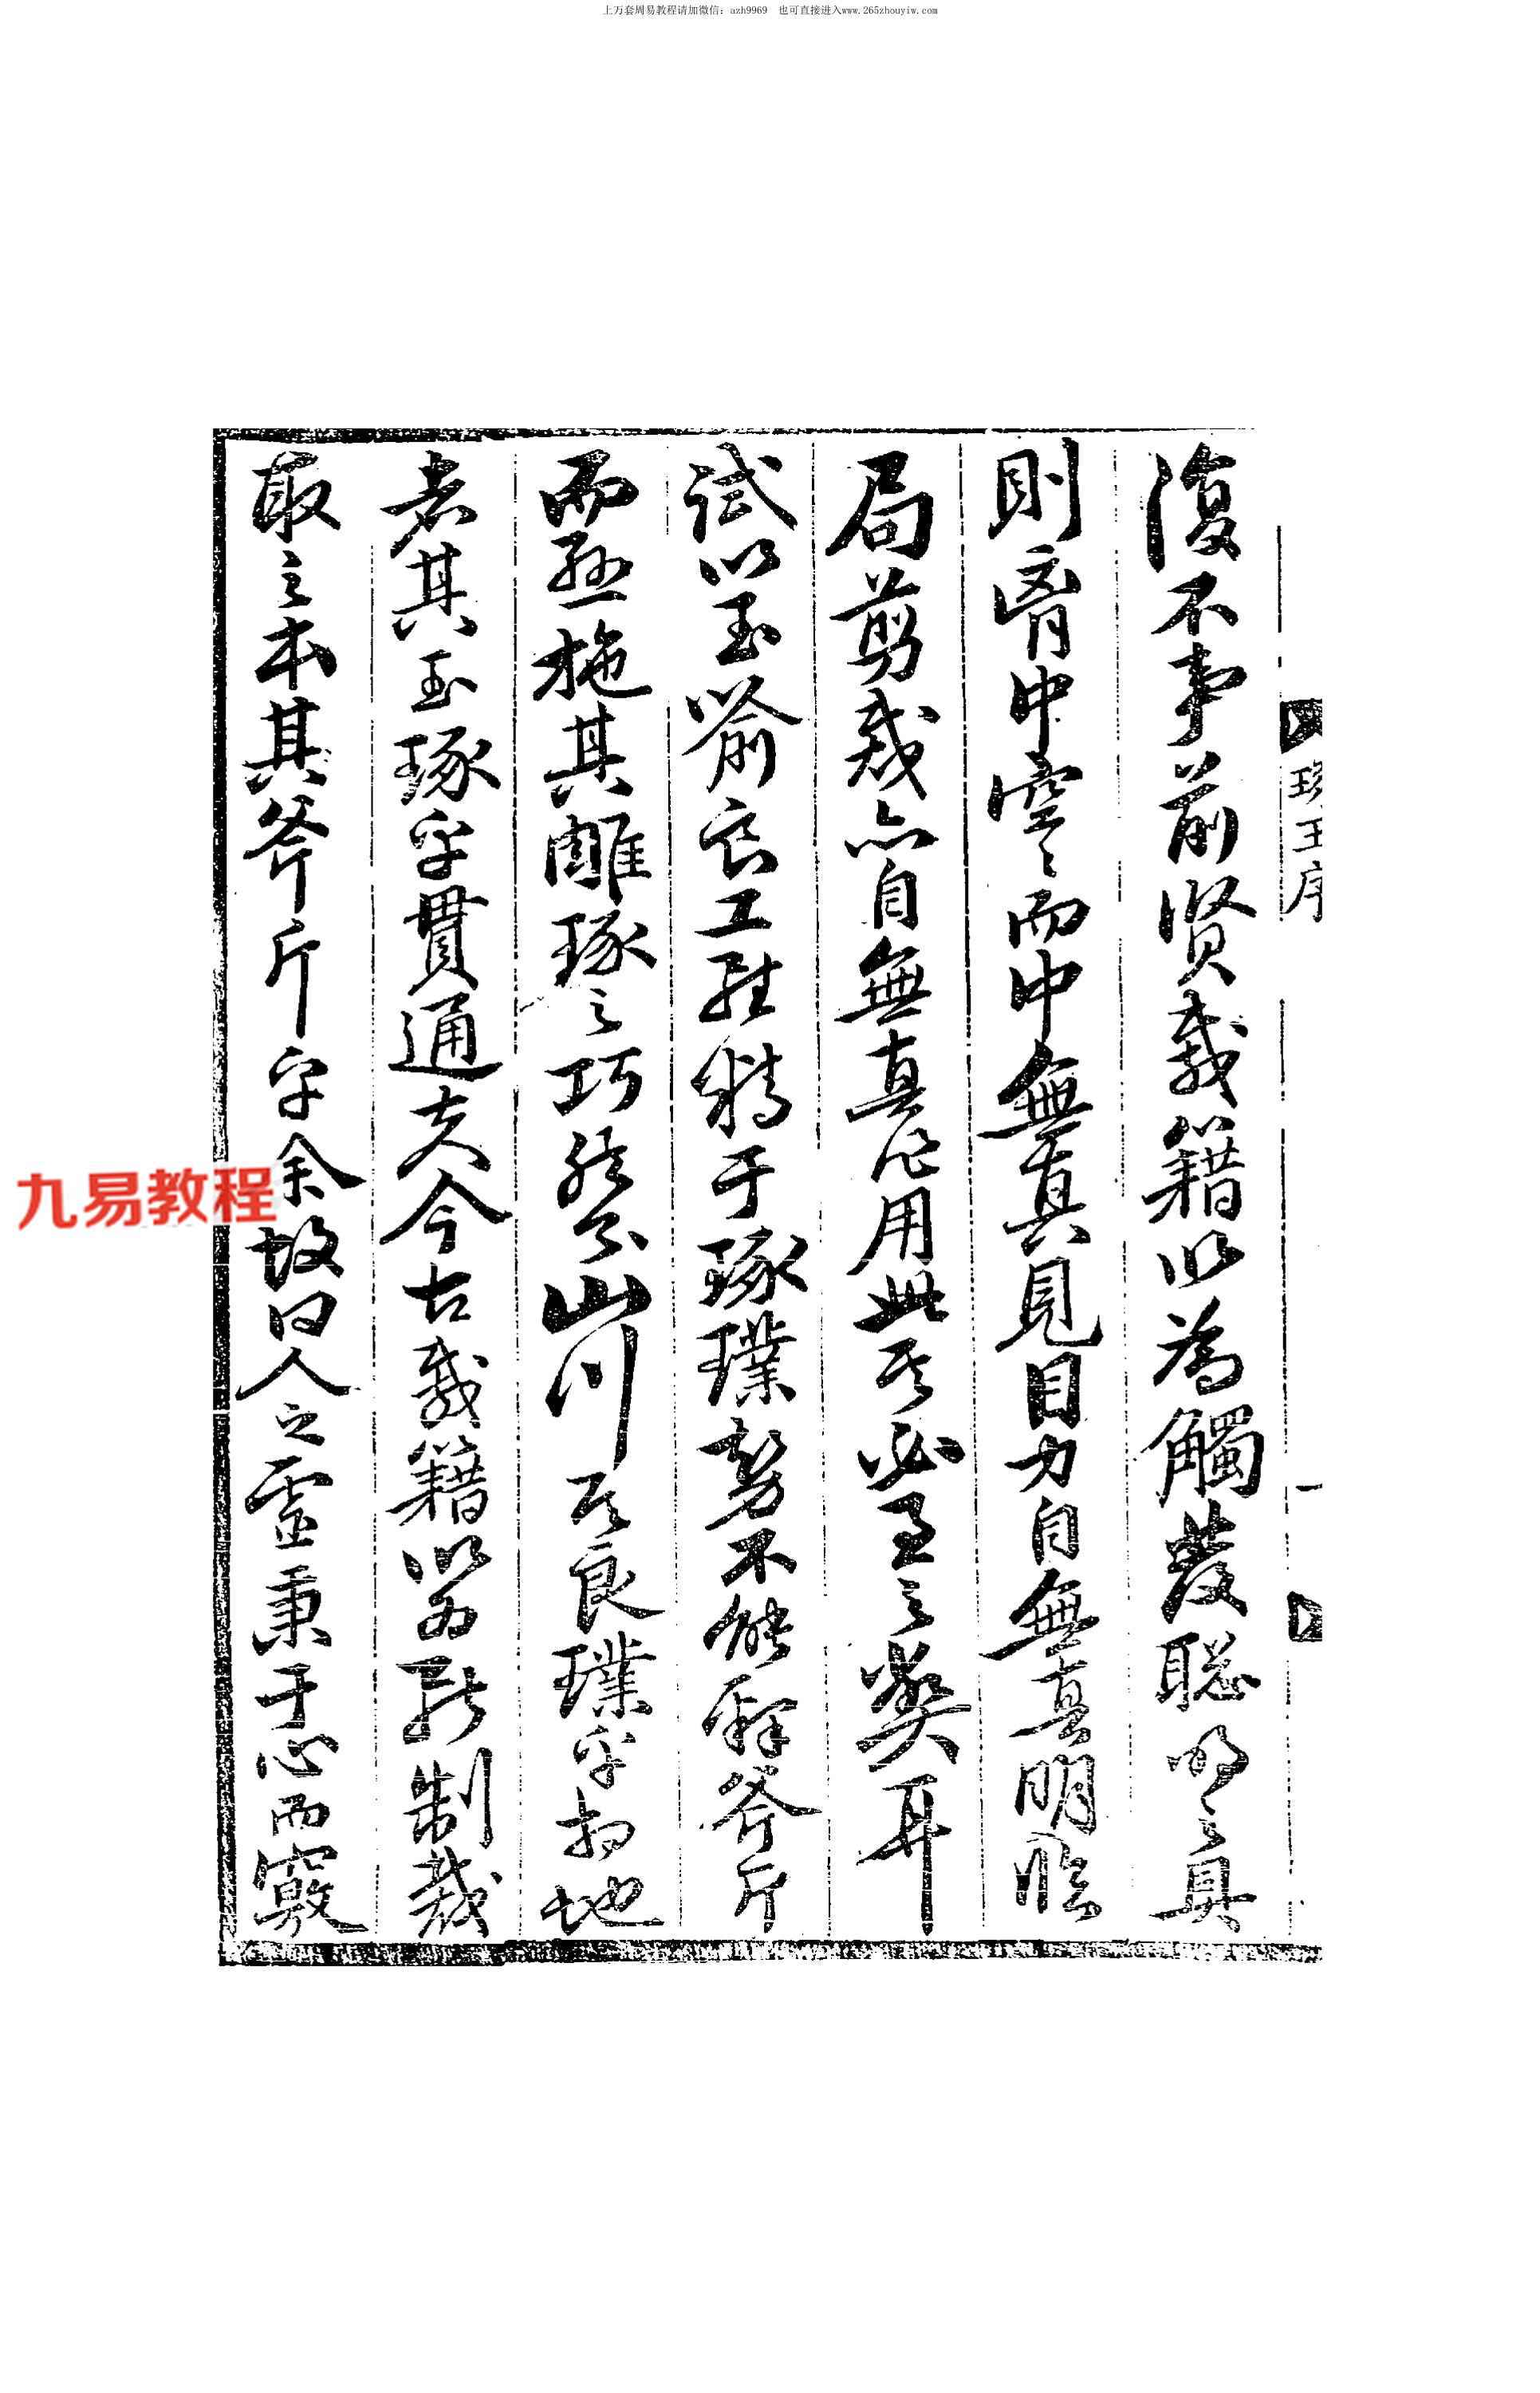 上万套周易教程请加微信：azh9969 也可直接进入www.265zhouyiw.com
王序
一
復不事前賢载籍以為觸發聡明之具
則胷中空〻而中無真見目力自無真明臨
局剪裁亦自無真作用此不必至之獘耳
試以玉喻良工雖精于琢璞勢不能釋斧斤
而施其雕琢之巧然公山川不良璞乎扫地
者其玉琢乎貫通夫今古载籍以為制裁
取之本其斧斤乎余故曰人之靈秉于心而竅
九易教程